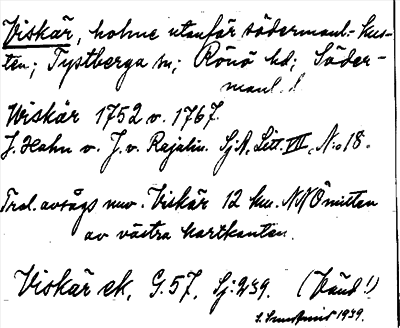 Viskär, holme utanför södermanl. kus-
ten; Tystberga sn; Rönö hd; Söder-
manl.
Wiskär 1752 v. 1767.
J. Hahn v. J. v. Rajalin. SjA, Litt. VII, N:o 18.
Trol. avsågs nuv. Viskär 12 km. NNÖ mitten
av västra kartkanten.
Viskär ek. G. 57, Sj: 239. (Vänd!)
1939.